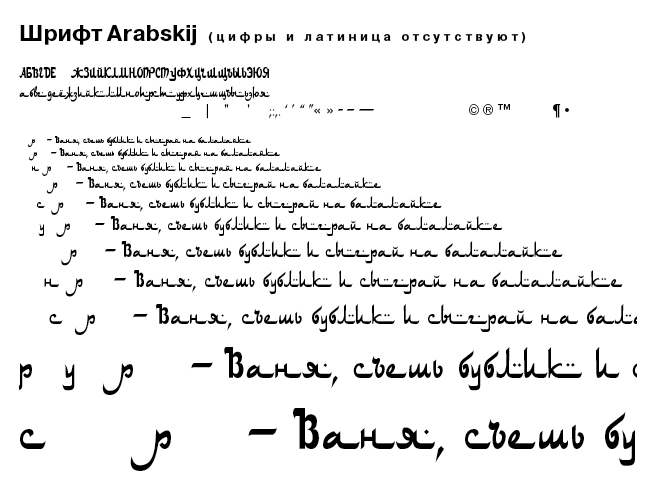 Шрифт Arabskij (цифры и латиница отсутствуют)
АБВГДЕ ЖЗИЙКЛМНОПРСТУФХЦЧШЩЪЫЬЭЮЯ
абвгдеёжзийклмнопрстуфхцчшщъыьэюя
_ | " ' ;:,. ‘ ’ “ ” « » - – —
© ® ™ ¶ •
р – Ваня, съешь бублик и сыграй на балалайке
р – Ваня, съешь бублик и сыграй на балалайке
н р – Ваня, съешь бублик и сыграй на балалайке
р – Ваня, съешь бублик и сыграй на балалайке
с р – Ваня, съешь бублик и сыграй на балалайке
у р – Ваня, съешь бублик и сыграй на балалайке
р – Ваня, съешь бублик и сыграй на балалайке
н р – Ваня, съешь бублик и сыграй на балалайке
с р – Ваня, съешь бублик и сыграй на бала
р у р – Ваня, съешь бублик и с
с р – Ваня, съешь бу